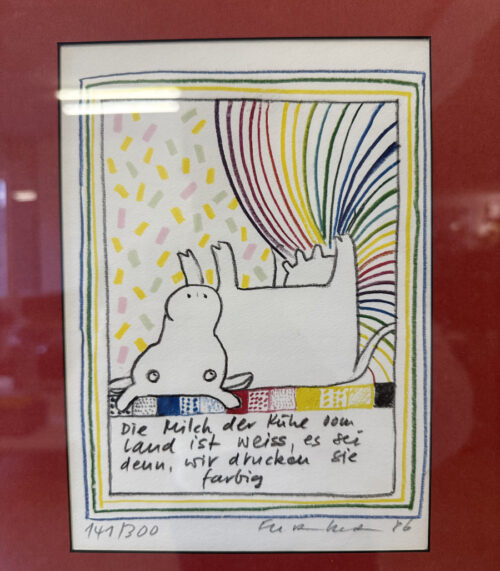 Die Milch der Kühe vom
Land ist weiss, es sei
denn, wir drucken sie
farbig
141/300
86